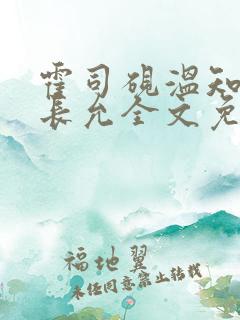 霍司砚温知
长允全文免
福地翼
未经同意禁止转载